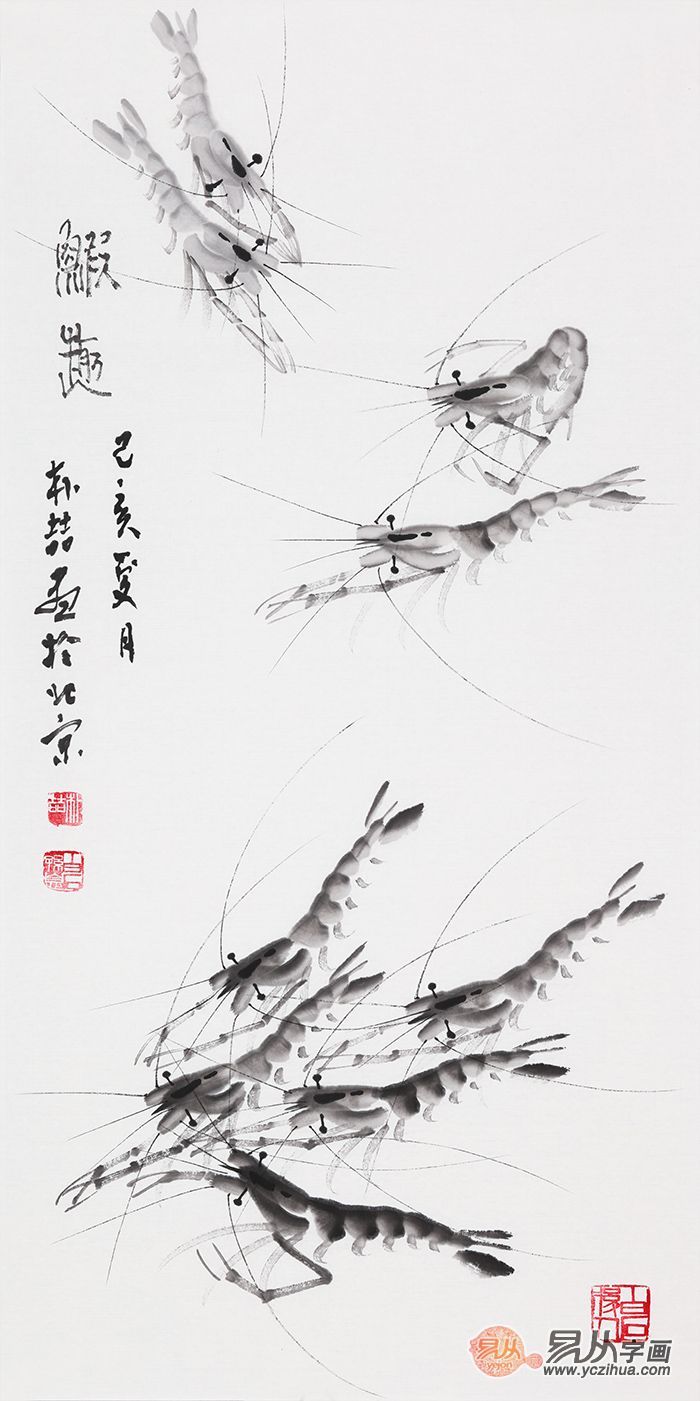 鰕趣
己亥夏月
朴喆画於北京
易从字画
www.yczihua.com